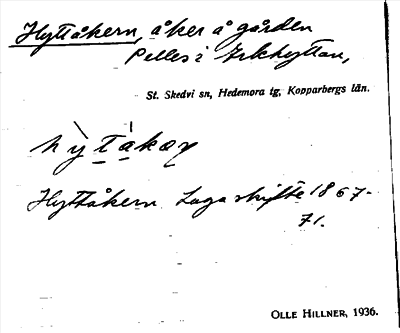 Hyttåkern, åker å gården
Pelles i Erkhyttan,
St. Skedvi sn, Hedemora tg, Kopparbergs län.
Hyttåkern Laga skifte 1867-
71.
OLLE HILLNER, 1936.